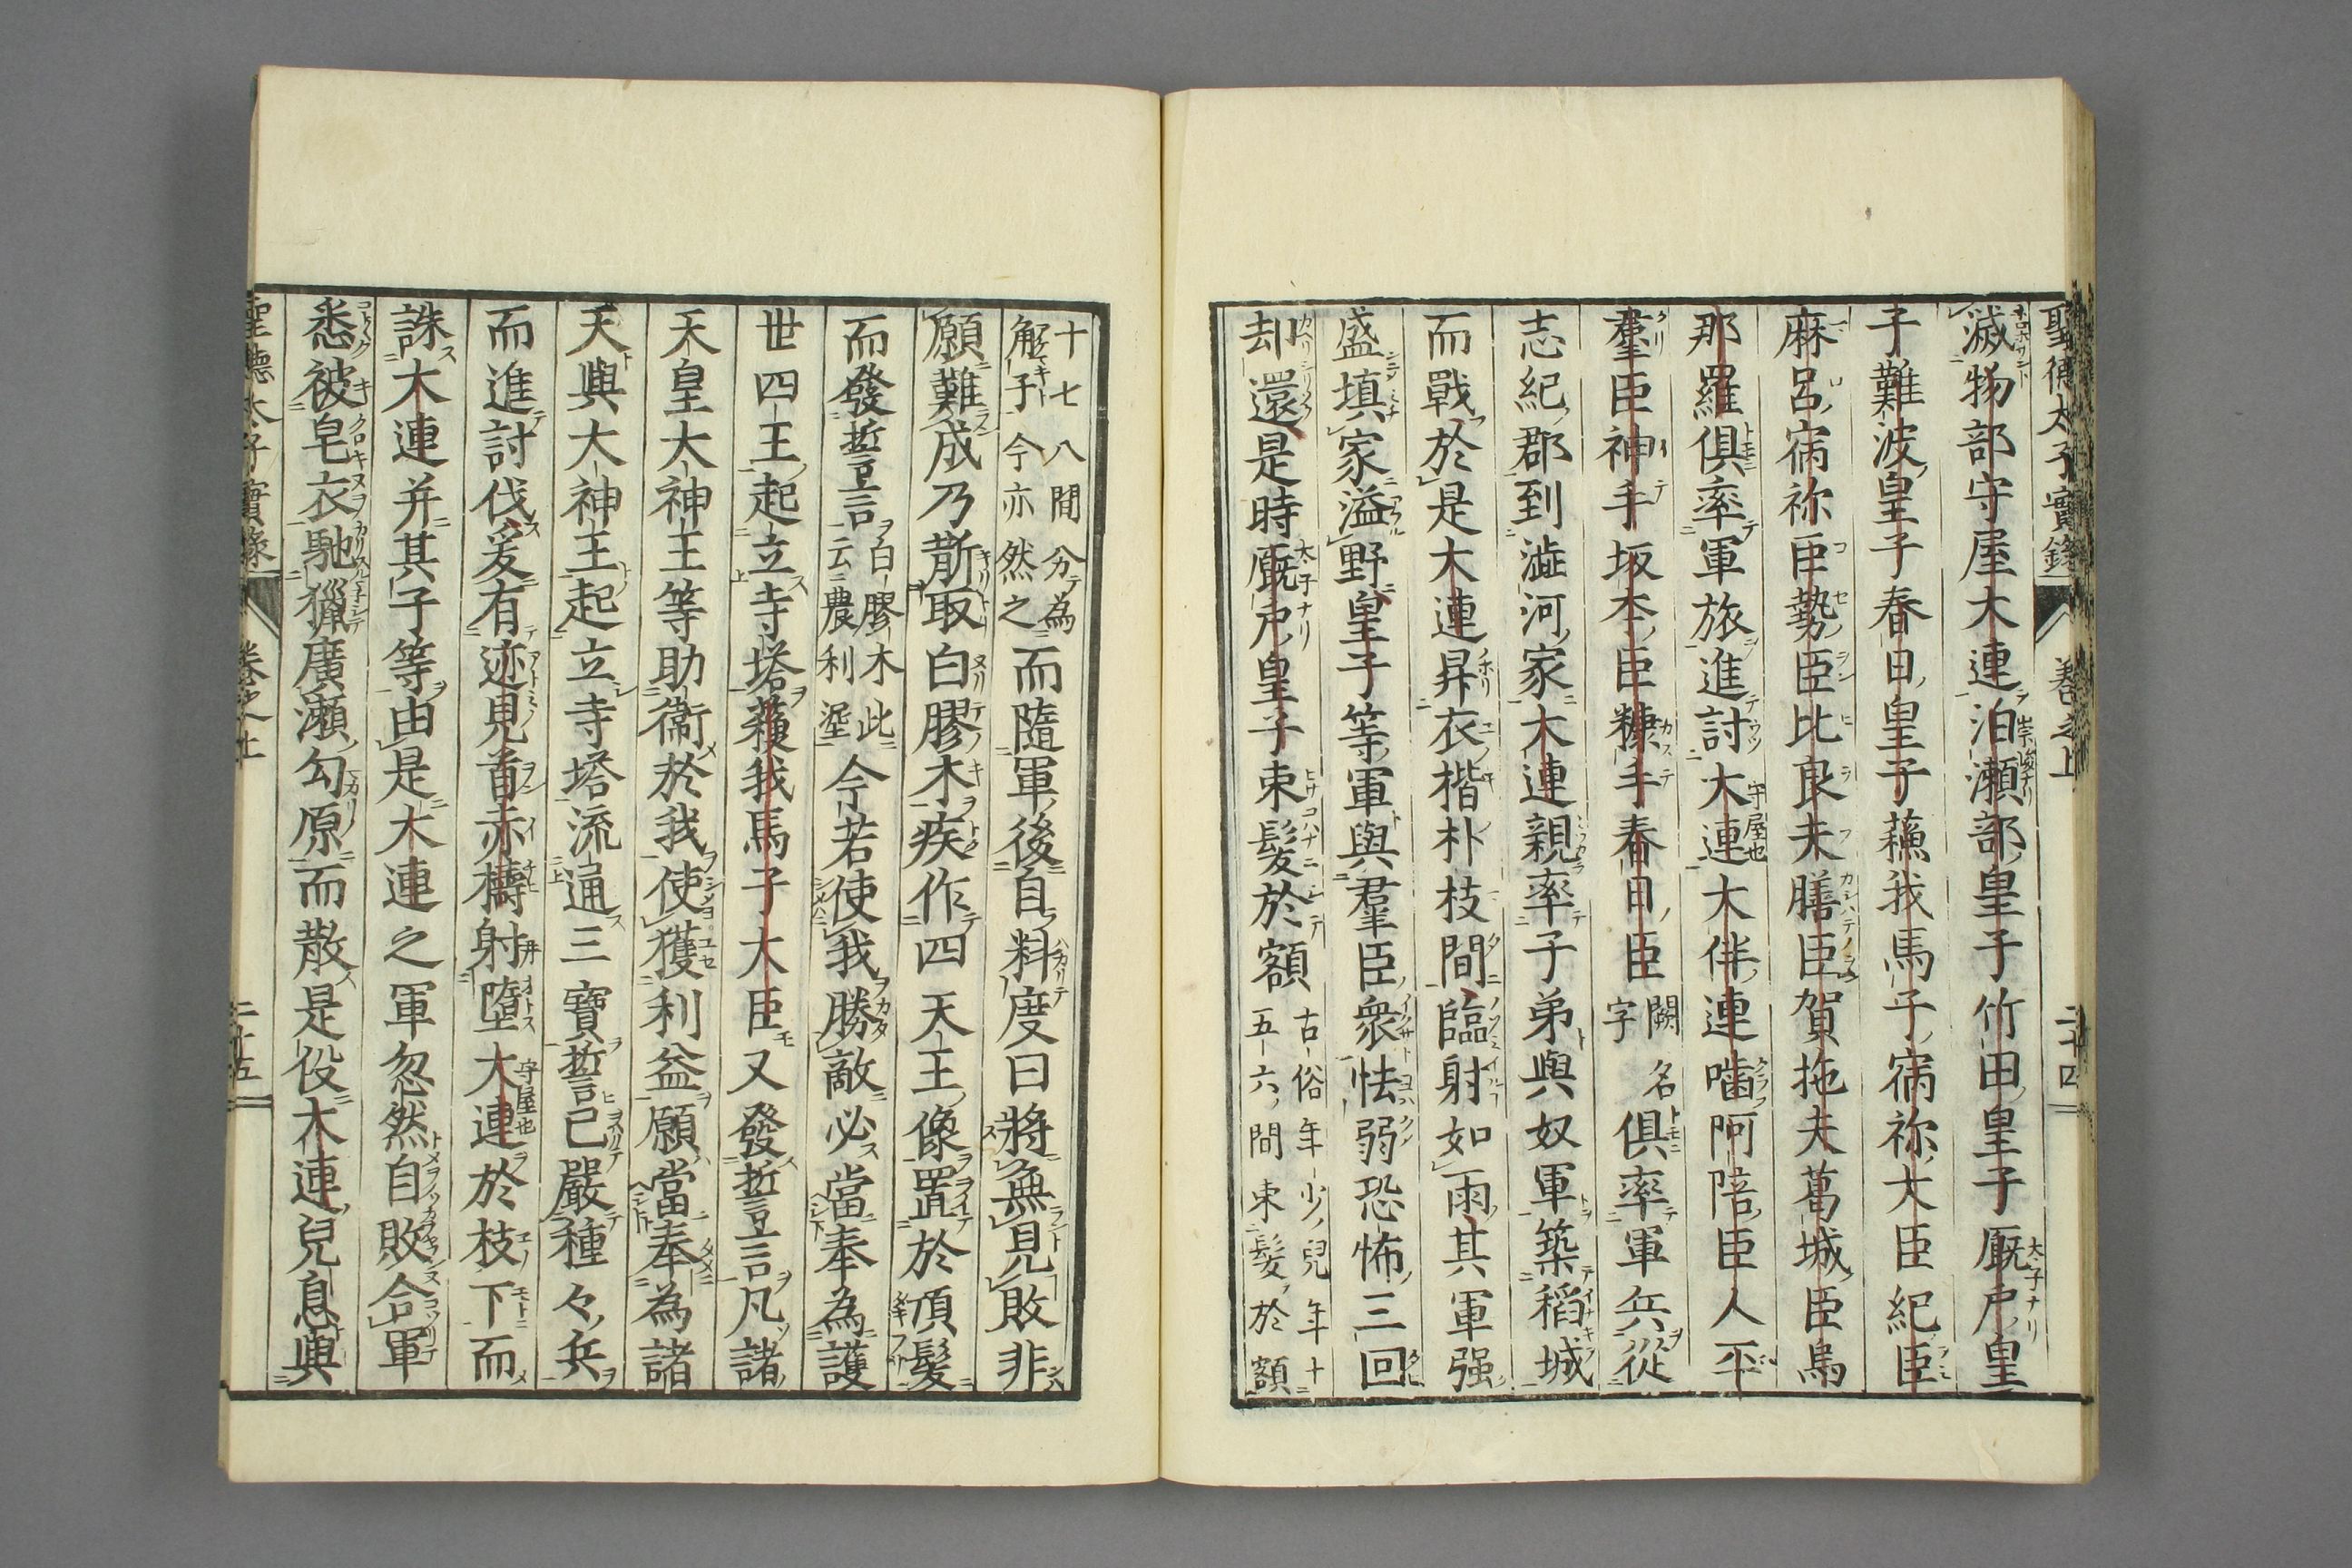 聖德太子實錄 卷之上 二十四
滅物部守屋大連泊瀬部皇子竹田皇子厩戸皇
子難波皇子春日皇子蘓我馬子宿祢大臣紀臣
麻呂宿祢臣勢臣比良夫膳臣賀拖夫葛城臣烏
那羅俱率軍旅進討大連大伴連噛阿陪臣人平
羣臣神手坂本臣糠手春日臣闕名字俱率軍兵從
志紀郡到澁河家大連親率子弟與奴軍築稻城
而戰於是大連昇衣楷朴枝間臨射如雨其軍强
盛填家溢野皇子等軍與羣臣衆怯弱恐怖三回
却還是時厩戸皇子束髮於額古俗年少兒年十五六間束髮於額
十七八間分為角子今亦然之而隨軍後自料度曰將無見敗非
願難成乃斮取白膠木疾作四天王像置於頂髮
而發誓言白膠木此云農利埿今若使我勝敵必當奉為護
世四王起立寺塔蘓我馬子大臣又發誓言凡諸
天皇大神王等助衞於我使獲利益願當奉為諸
天與大神王起立寺塔流通三寶誓已嚴種々兵
而進討伐爰有迹見首赤檮射墮大連於枝下而
誅大連并其子等由是大連之軍忽然自敗合軍
悉被皂衣馳獵廣瀬勾原而散是役大連兒息與
聖德太子實錄 卷之上 二十五